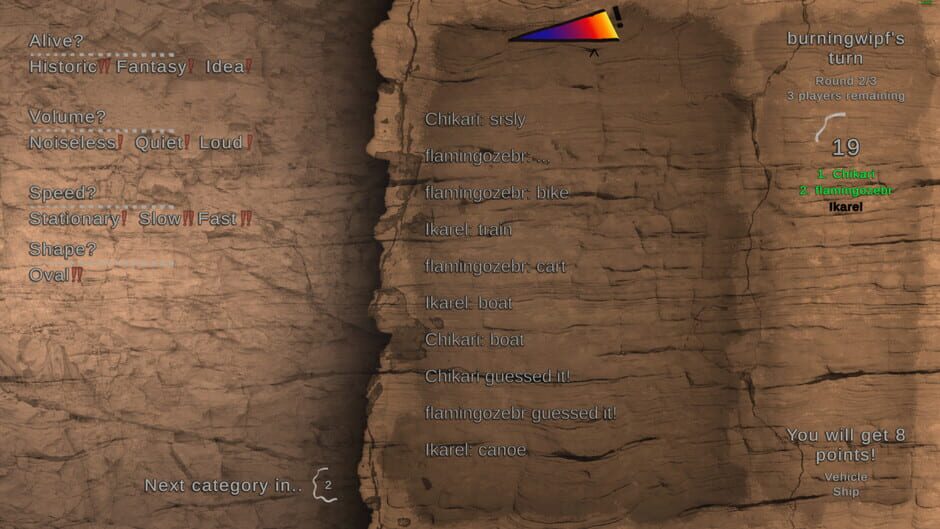 Alive?
Historic!! Fantasy! Idea!
Volume?
Noiseless! Quiet! Loud!
Speed?
Stationary! Slow!! Fast!!
Shape?
Oval!!
Next category in.. 2
!
Chikari: srsly
flamingozebr: ...
flamingozebr: bike
Ikarel: train
flamingozebr: cart
Ikarel: boat
Chikari: boat
Chikari guessed it!
flamingozebr guessed it!
Ikarel: canoe
burningwipf's
turn
Round 2/3
3 players remaining
19
1. Chikari
2. flamingozebr
Ikarel
You will get 8
points!
Vehicle
Ship